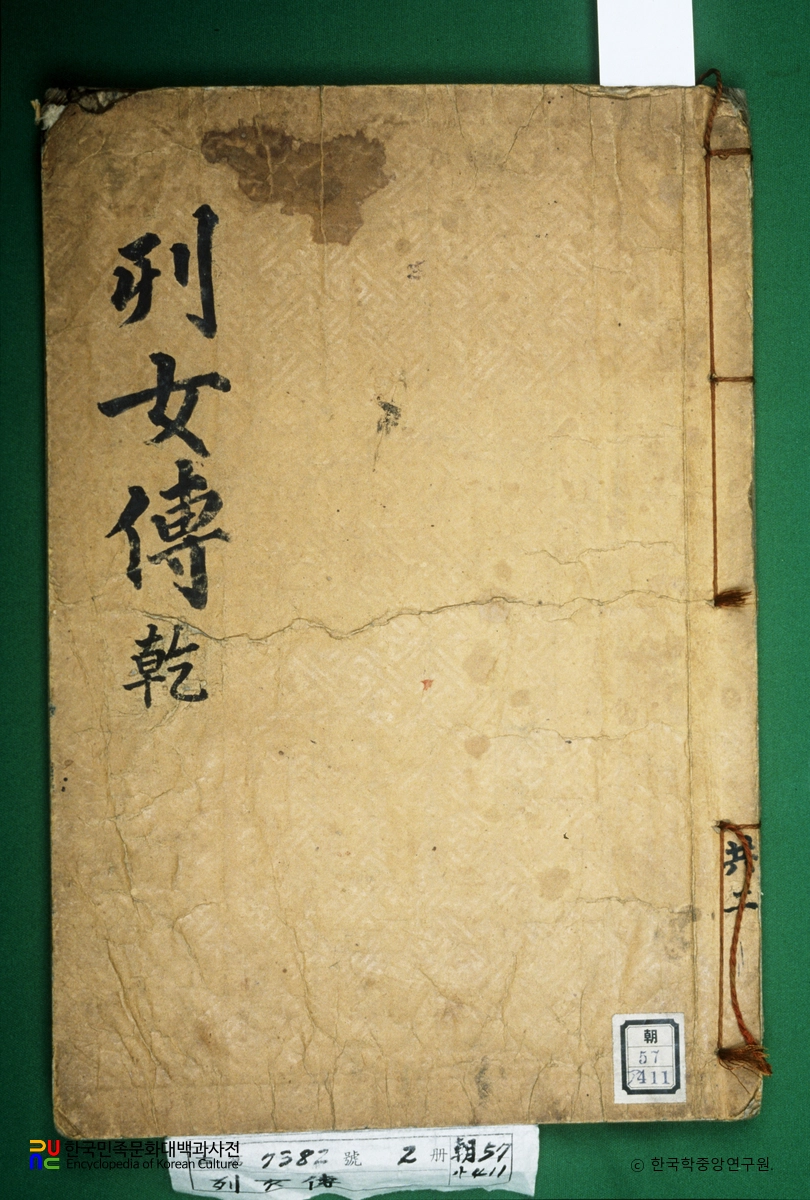 列女傳 乾
共二
朝
57
411
7382 號 2 册 朝57
列女傳
한국민족문화대백과사전
Encyclopedia of Korean Culture
© 한국학중앙연구원.